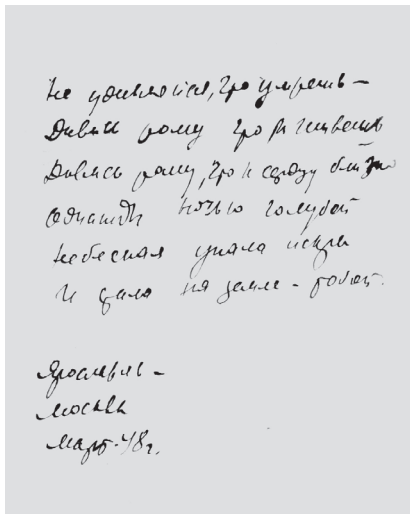 Не удивляйся, что умрешь –
Дивись тому что ты живешь
Дивись тому, что к сердцу близко
однажды ночью голубой
небесная упала искра
И стала на земле – тобой.
Ярославль –
Москва
Март. 48 г.